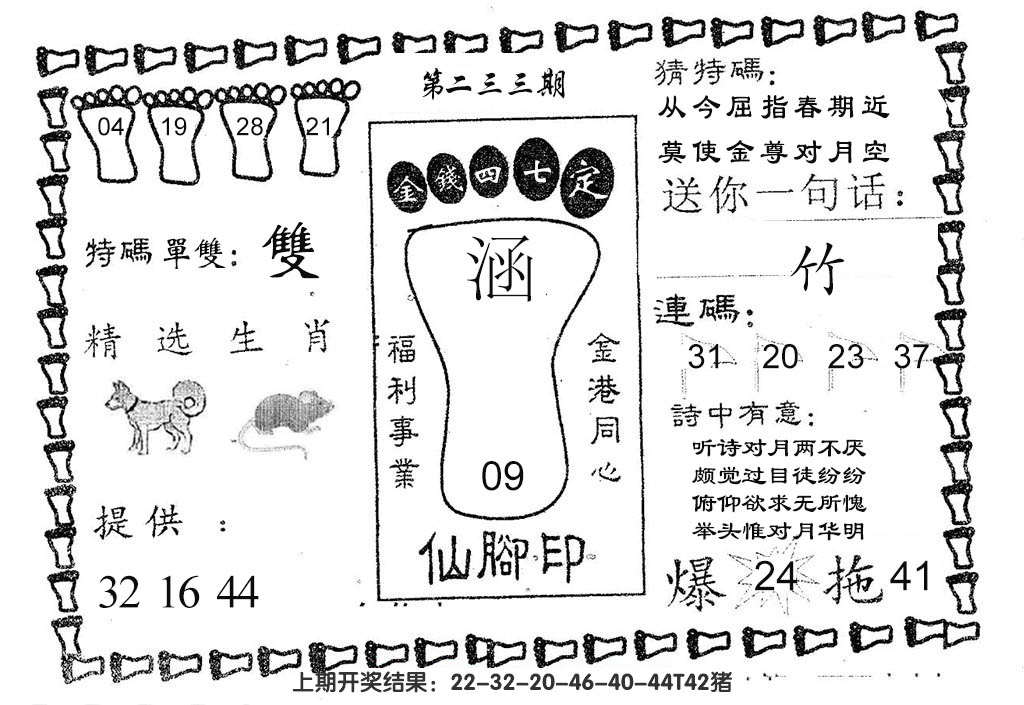 第二三三期
04 19 28 21
特碼單雙: 雙
精选生肖
提供:
32 16 44
金錢四七定
涵
福利事業
金港同心
09
仙腳印
猜特碼:
从今屈指春期近
莫使金尊对月空
送你一句话:
竹
連碼:
31 20 23 37
詩中有意:
听诗对月两不厌
颇觉过目徒纷纷
俯仰欲求无所愧
举头惟对月华明
爆 24 拖 41
上期开奖结果：22-32-20-46-40-44T42猪